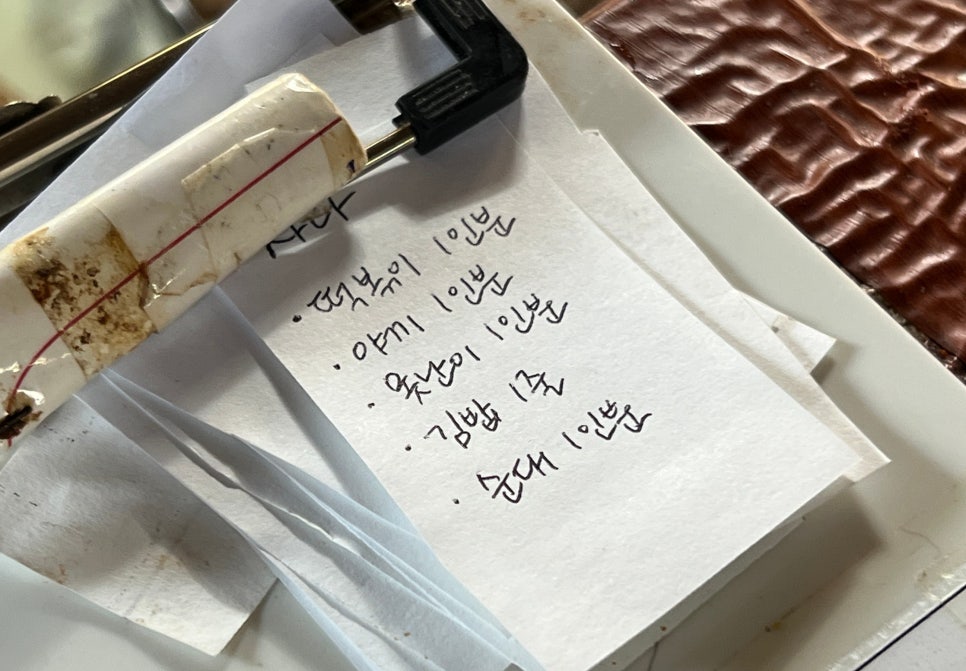 · 떡볶이 1인분
· 야끼 1인분
· 못난이 1인분
· 김밥 1줄
· 순대 1인분